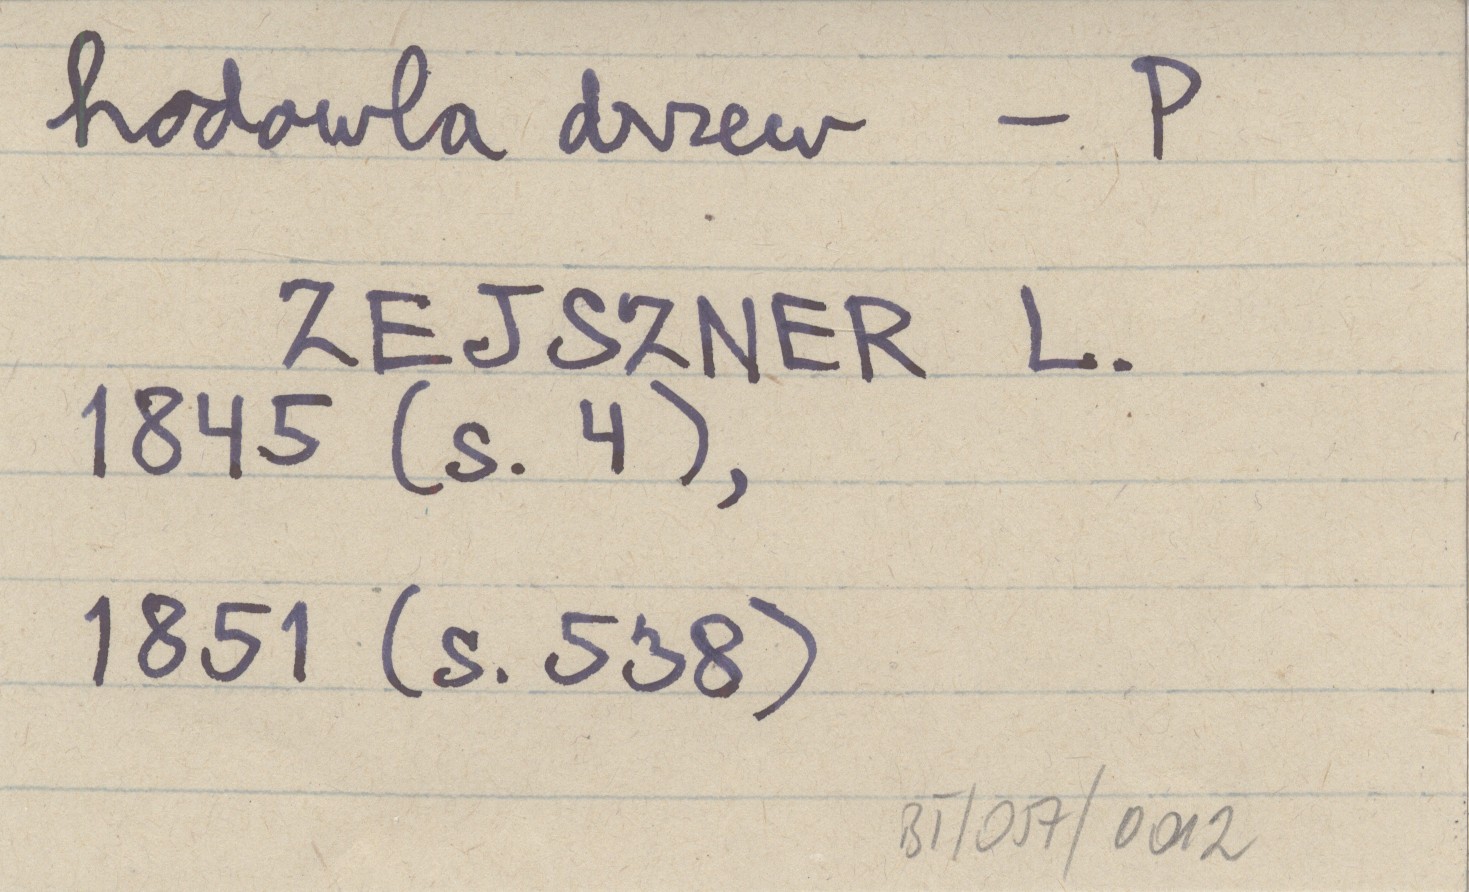 hodowla drzew - P
ZEJSZNER L.
1845 (s. 4),
1851 (s. 538)
BT/057/0012